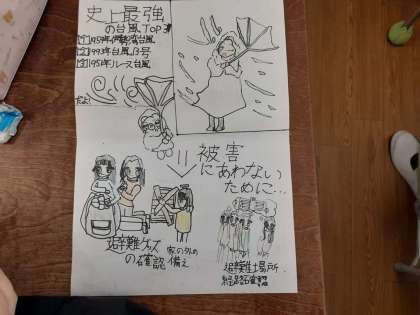 史上最強
の台風TOP3
[1]1959年伊勢湾台風
[2]1993年台風13号
[3]1951年ルース台風
だよ!
被害
にあわない
ために…
避難グッズ
の確認
家の外の
備え
避難場所・
経路確認